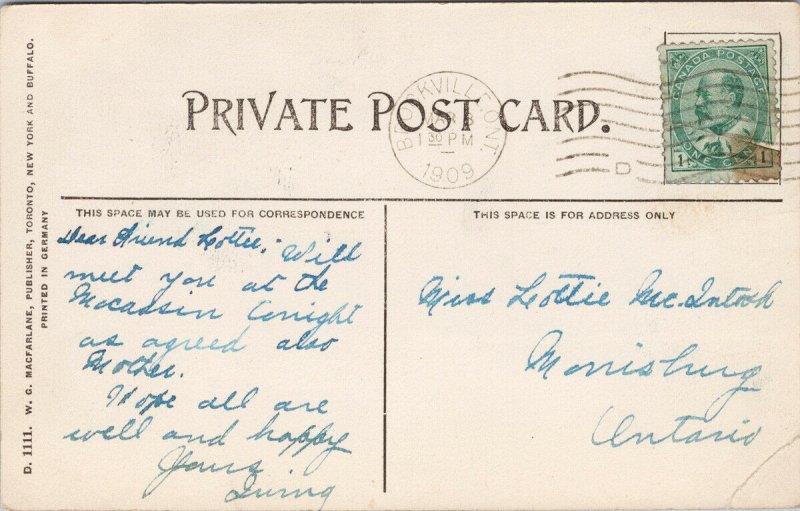 PRIVATE POST CARD.
BROCKVILLE ONT.
1 30 PM
1909
D
CANADA POSTAGE
1 1
ONE CENT
D. 1111. W. G. MACFARLANE, PUBLISHER, TORONTO, NEW YORK AND BUFFALO.
PRINTED IN GERMANY
THIS SPACE MAY BE USED FOR CORRESPONDENCE
Dear Friend Lottie; Will
meet you at the
Mocassin tonight
as agreed also
Mother.
Hope all are
well and happy
Yours
Irving
THIS SPACE IS FOR ADDRESS ONLY
Miss Lottie Mc.Intosh
Morrisburg
Ontario